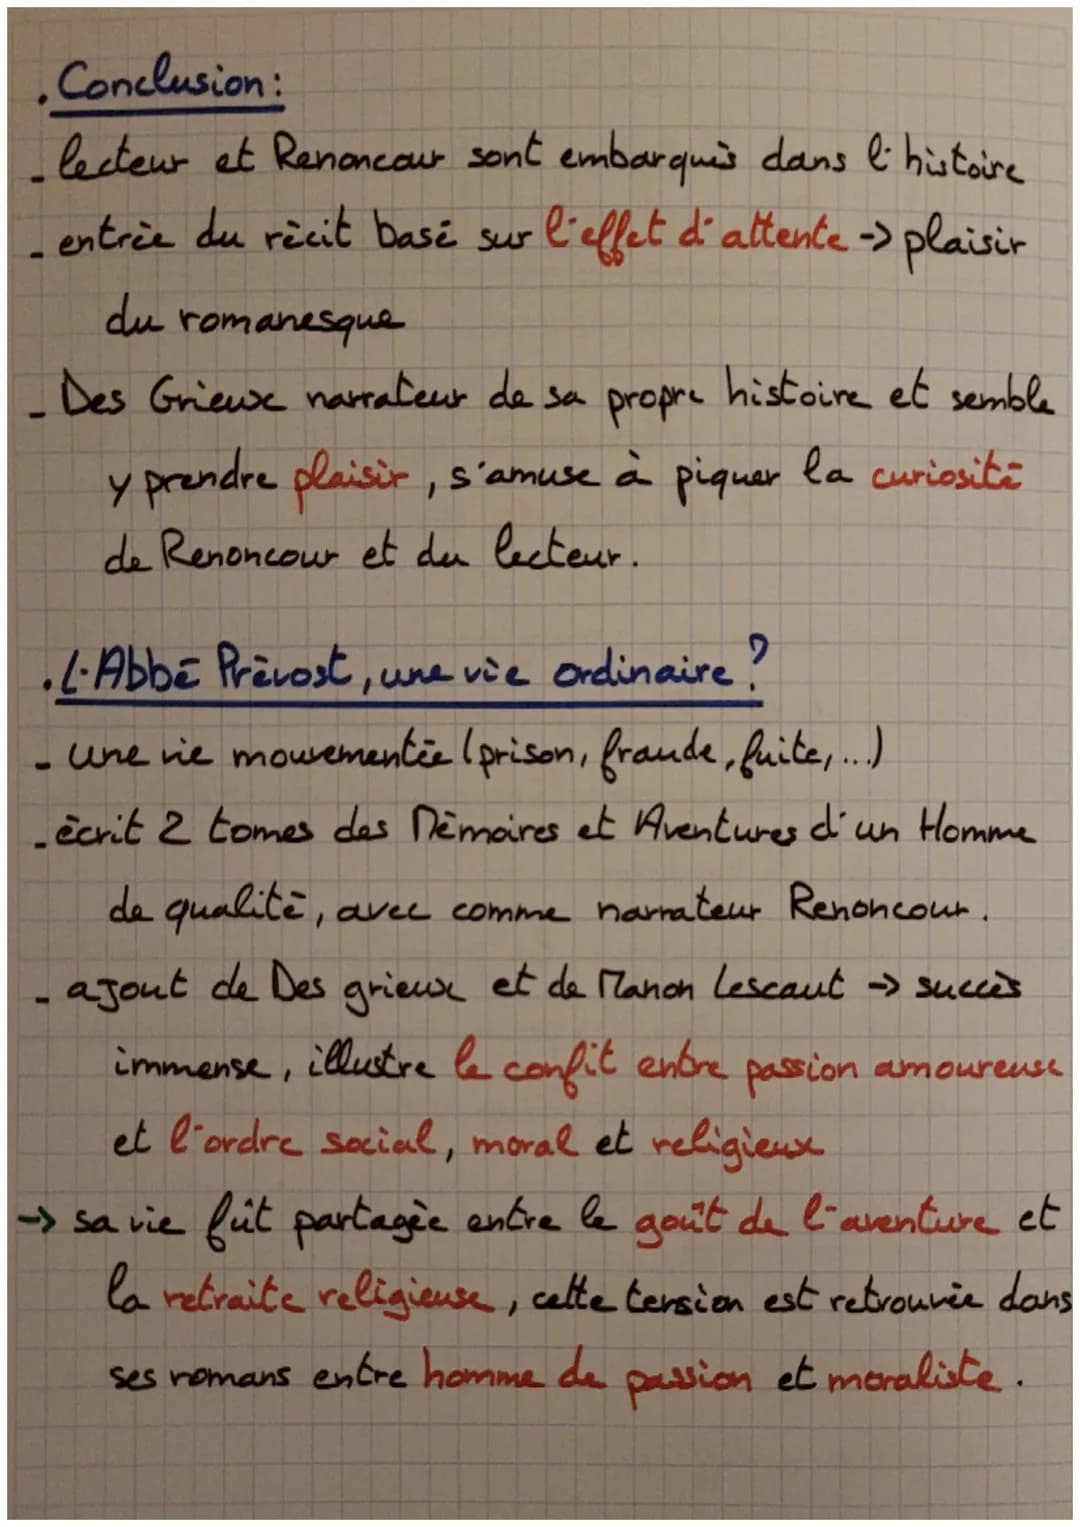 . Conclusion:
- lecteur et Renoncour sont embarqués dans l'histoire
- entrée du récit basé sur l'effet d'attente -> plaisir
du romanesque
- Des Grieux narrateur de sa propre histoire et semble
y prendre plaisir, s'amuse à piquer la curiosité
de Renoncour et du lecteur.
. L'Abbé Prévost, une vie ordinaire ?
- une vie mouvementée (prison, fraude, fuite, ...)
- écrit 2 tomes des Mémoires et Aventures d'un Homme
de qualité, avec comme narrateur Renoncour.
- ajout de Des grieux et de Manon Lescaut -> succès
immense, illustre le confit entre passion amoureuse
et l'ordre social, moral et religieux
-> sa vie fût partagée entre le goût de l'aventure et
la retraite religieuse, cette tension est retrouvée dans
ses romans entre homme de passion et moraliste.